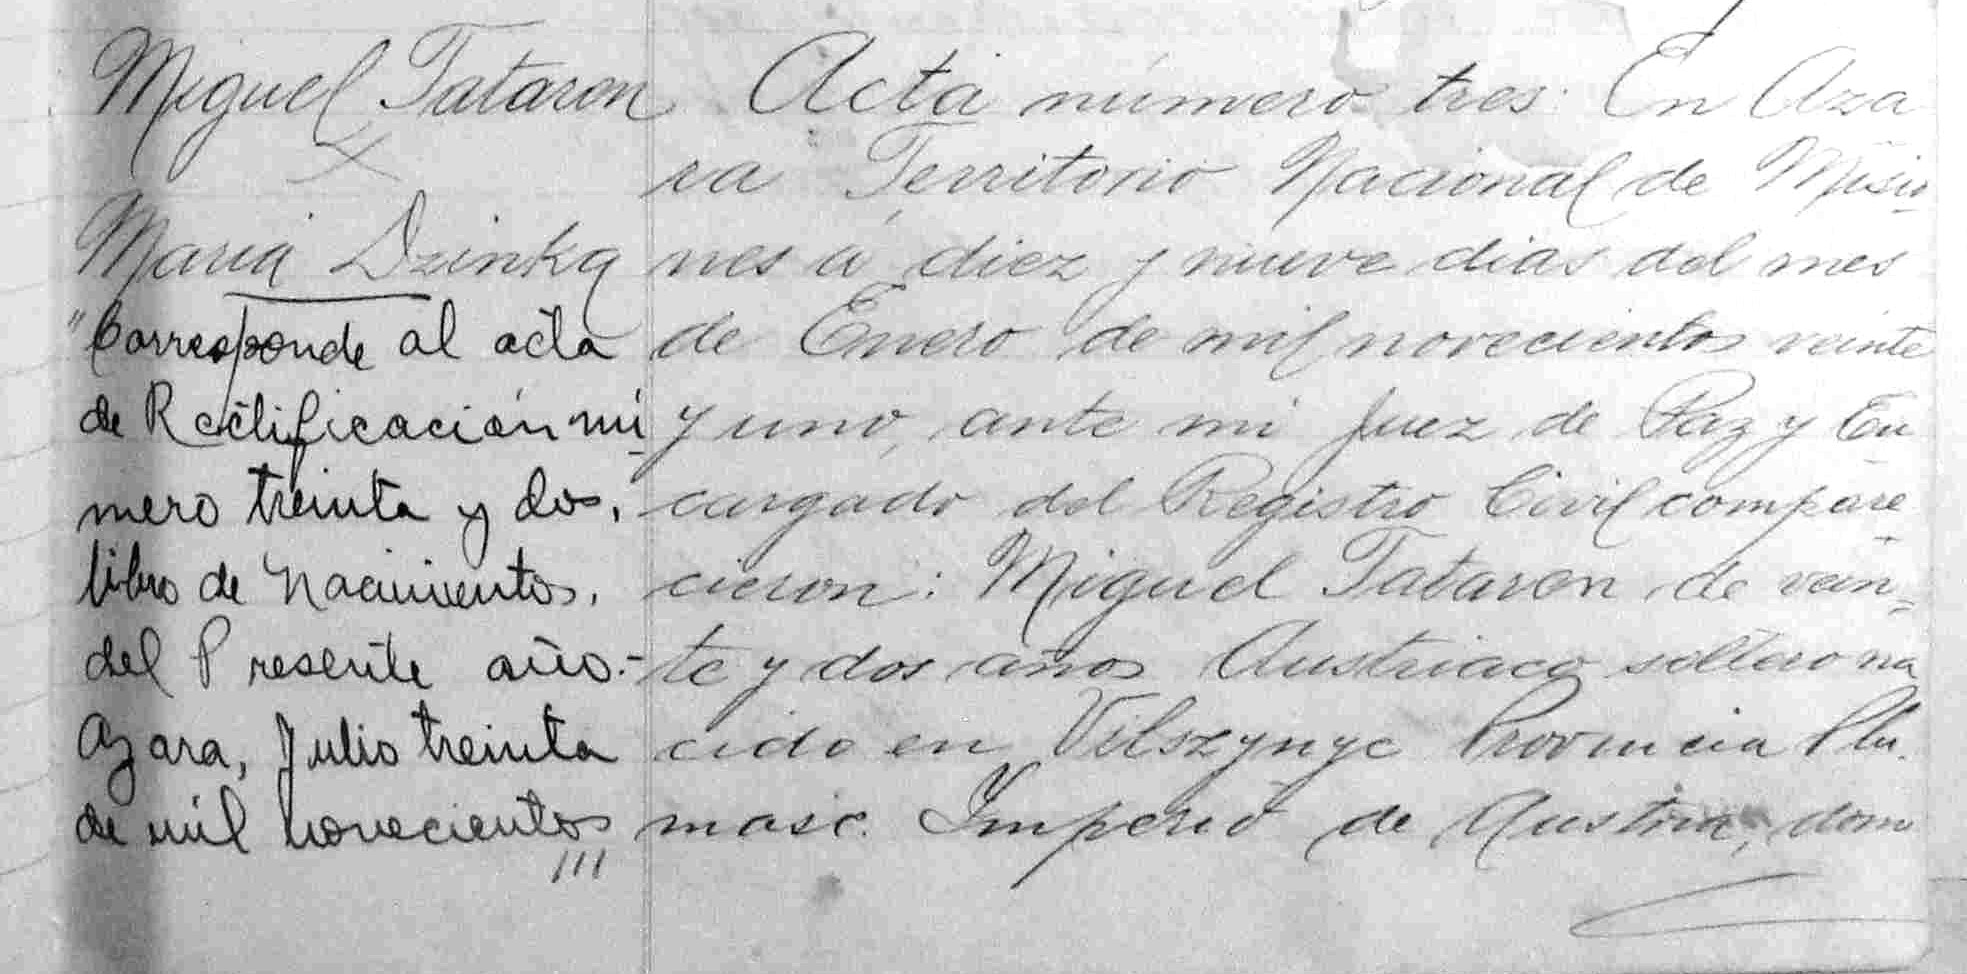 Miguel Tataren
x
Maria Dzinkq
"Corresponde al acta
de Rectificación nú
mero treinta y dos,
libro de Nacimientos,
del Presente año.-
Azara, Julio treinta
de mil novecientos
///
Acta número tres. En Aza
ra Territorio Nacional de Misio
nes a diez y nueve dias del mes
de Enero de mil novecientos veinte
y uno, ante mi Juez de Paz y En
cargado del Registro Civil compare
cieron: Miguel Tataren de vein=
te y dos años Austriaco soltero na
cido en Vilszynye Provincia
Imperio de Austria, domi